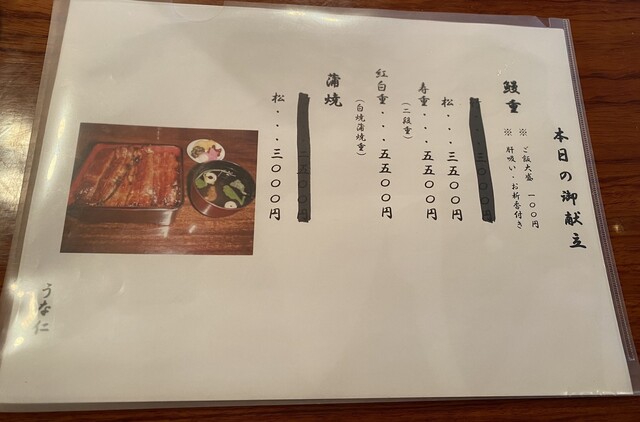 本日の御献立
鰻重
※ ご飯大盛 一〇〇円
※ 肝吸い・お新香付き
松・・・三五〇〇円
寿重・・・五五〇〇円
(二段重)
紅白重・・・五五〇〇円
(白焼蒲焼重)
蒲焼
松・・・三〇〇〇円
うな仁